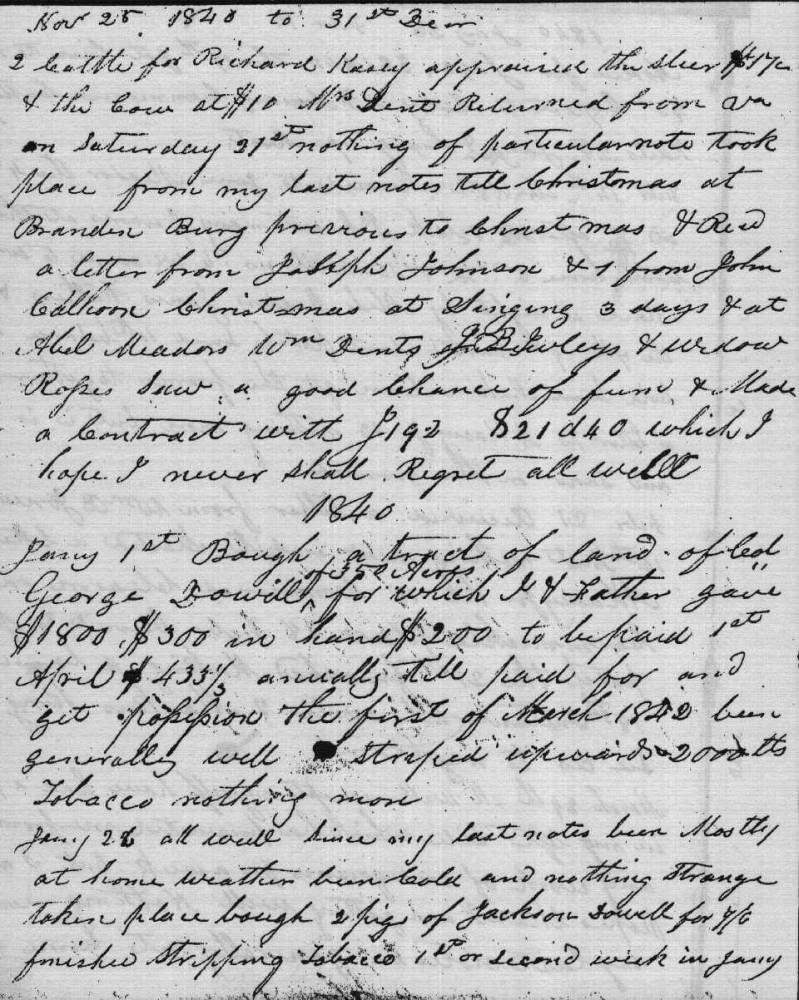 Novr 25 1840 to 31st Decr
2 Cattle for Richard Kasey appraised the steer
& the Cow at $10 Mrs Dent Returned from Va
on Saturday 21st nothing of particular note took
place from my last notes till Christmas at
Branden Burg previous to Christmas & Recd
a letter from Joseph Johnson & 1 from John
Calhoon Christmas at Singing 3 days & at
Abel Meadors Wm Dents & widow
Roses Saw a good Chance of funn & Made
a Contract with $21 d40 which I
hope I never shall Regret all well
1840
Jany 1st Bough a tract of land of Col
of 350 Acres
George Dowill for which I & Father gave
$1800 $300 in hand $200 to be paid 1st
April $433 1/3 anually till paid for and
get possession the first of March 1842 been
generally well Straped upwards 2000 lbs
Tobacco nothing more
Jany 28 all well Since my last notes been Mostly
at home weather been Cold and nothing Strange
taken place bough 2 pigs of Jackson Dowell for
finished Stripping Tobacco 1st or second week in Jany